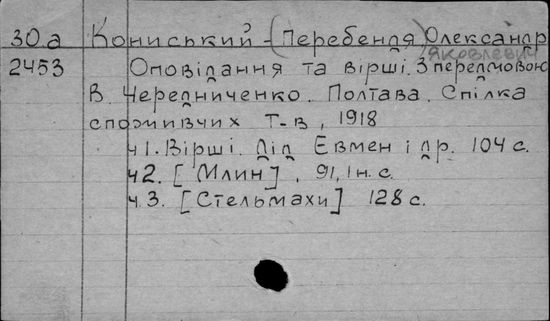 30.а Кониський-(Перебендя) Олександр
Яковлевич
2453 Оповідання та вірші. З передмовою
В. Чередниченко. Полтава. Спілка
споживчих т-в, 1918
ч1. Вірші. Дід Евмен і др. 104 с.
ч2. [Млин], 91, 1н. с.
ч.3. [Стельмахи] 128 с.